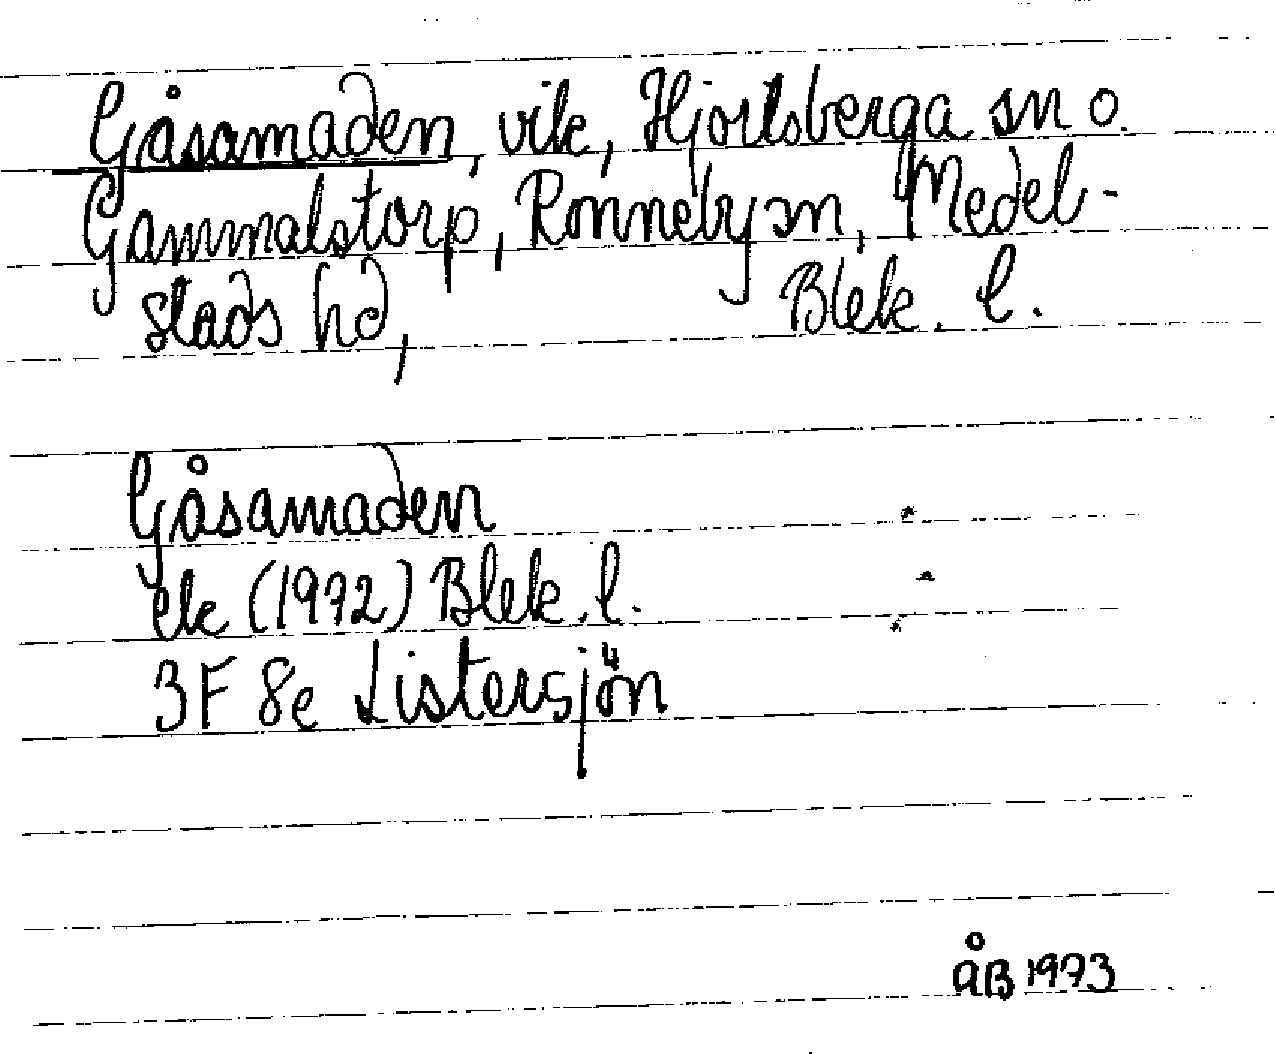 Gåsamaden, vik, Hjortsberga sn o.
Gammalstorp, Ronneby sn, Medel-
stads hd, Blek. l.
Gåsamaden
ek (1972) Blek. l.
3F 8e Listersjön
ÅB 1973